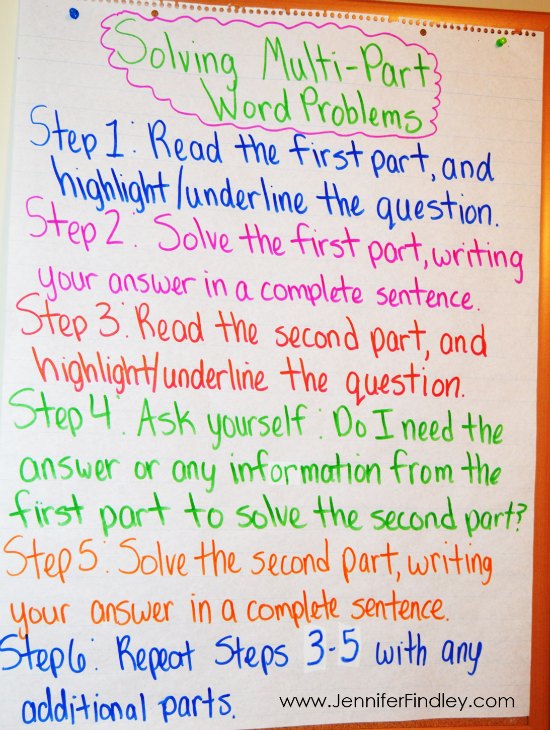 Solving Multi-Part
Word Problems
Step 1: Read the first part, and
highlight/underline the question.
Step 2: Solve the first part, writing
your answer in a complete sentence.
Step 3: Read the second part, and
highlight/underline the question.
Step 4: Ask yourself: Do I need the
answer or any information from the
first part to solve the second part?
Step 5: Solve the second part, writing
your answer in a complete sentence.
Step 6: Repeat Steps 3-5 with any
additional parts.
www.JenniferFindley.com